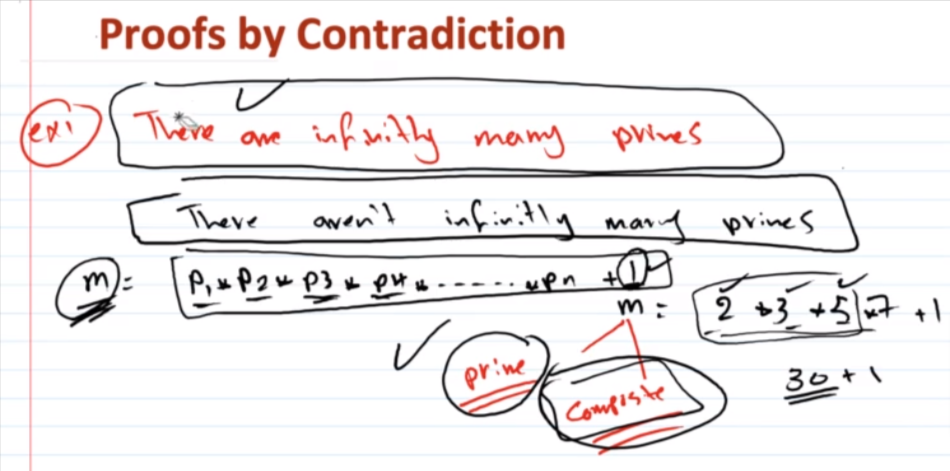 Proofs by Contradiction
ex1
There are infinitly many primes
There aren't infinitly many primes
m = P1 * P2 * P3 * P4 * ....... * Pn + 1
m = 2 * 3 * 5 * 7 + 1
prime
Composite
30 + 1